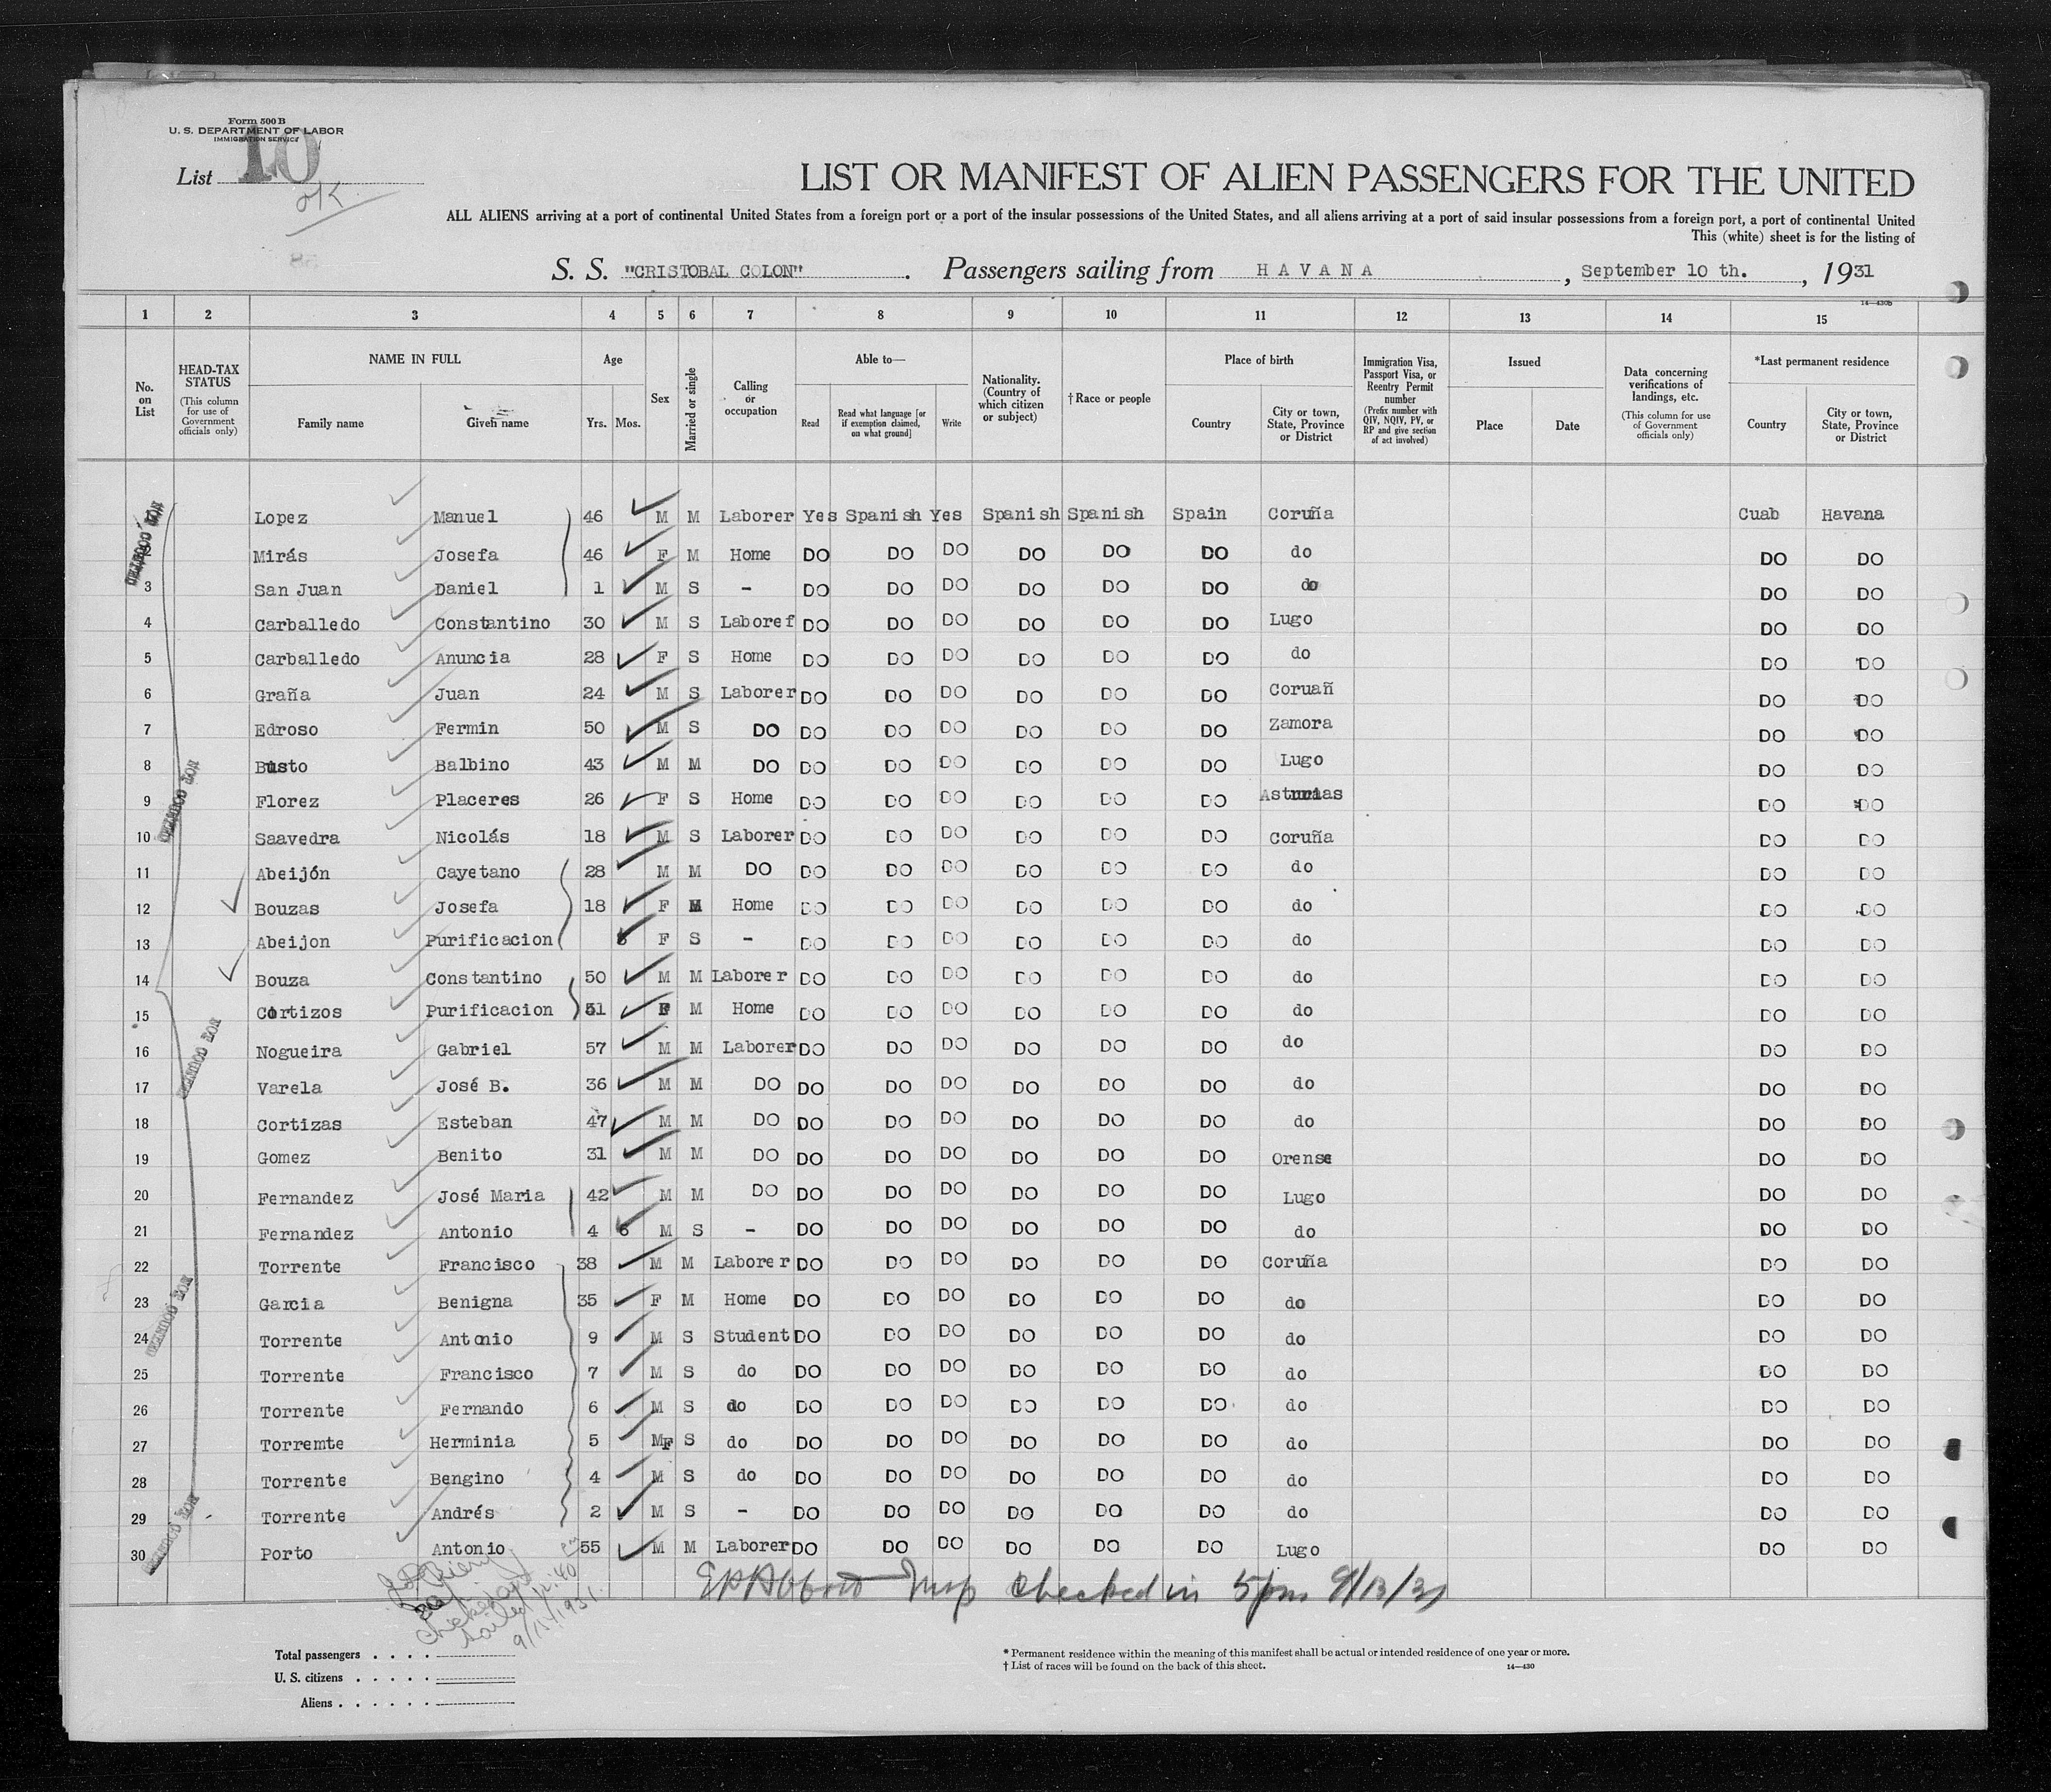 Form 500 B
U. S. DEPARTMENT OF LABOR
IMMIGRATION SERVICE
List 10
OK
LIST OR MANIFEST OF ALIEN PASSENGERS FOR THE UNITED
ALL ALIENS arriving at a port of continental United States from a foreign port or a port of the insular possessions of the United States, and all aliens arriving at a port of said insular possessions from a foreign port, a port of continental United
This (white) sheet is for the listing of
S. S. "CRISTOBAL COLON". Passengers sailing from HAVANA, September 10 th., 1931
14—430b
1 2 3 4 5 6 7 8 9 10 11 12 13 14 15
No. on List
HEAD-TAX STATUS (This column for use of Government officials only)
NAME IN FULL Family name Given name
Age Yrs. Mos.
Sex
Married or single
Calling or occupation
Able to— Read Read what language [or if exemption claimed, on what ground] Write
Nationality. (Country of which citizen or subject)
†Race or people
Place of birth Country City or town, State, Province or District
Immigration Visa, Passport Visa, or Reentry Permit number (Prefix number with QIV, NQIV, PV, or RP and give section of act involved)
Issued Place Date
Data concerning verifications of landings, etc. (This column for use of Government officials only)
*Last permanent residence Country City or town, State, Province or District
Lopez Manuel 46 M M Laborer Yes Spanish Yes Spanish Spanish Spain Coruña Cuab Havana
Mirás Josefa 46 F M Home DO DO DO DO DO DO do DO DO
3 San Juan Daniel 1 M S - DO DO DO DO DO DO do DO DO
4 Carballedo Constantino 30 M S Laboref DO DO DO DO DO DO Lugo DO DO
5 Carballedo Anuncia 28 F S Home DO DO DO DO DO DO do DO DO
6 Graña Juan 24 M S Laborer DO DO DO DO DO DO Coruañ DO DO
7 Edroso Fermin 50 M S DO DO DO DO DO DO DO Zamora DO DO
8 Busto Balbino 43 M M DO DO DO DO DO DO DO Lugo DO DO
9 Florez Placeres 26 F S Home DO DO DO DO DO DO Asturias DO DO
10 Saavedra Nicolás 18 M S Laborer DO DO DO DO DO DO Coruña DO DO
11 Abeijón Cayetano 28 M M DO DO DO DO DO DO DO do DO DO
12 Bouzas Josefa 18 F M Home DO DO DO DO DO DO do DO DO
13 Abeijon Purificacion F S - DO DO DO DO DO DO do DO DO
14 Bouza Constantino 50 M M Laborer DO DO DO DO DO DO do DO DO
15 Cortizos Purificacion 51 F M Home DO DO DO DO DO DO do DO DO
16 Nogueira Gabriel 57 M M Laborer DO DO DO DO DO DO do DO DO
17 Varela José B. 36 M M DO DO DO DO DO DO DO do DO DO
18 Cortizas Esteban 47 M M DO DO DO DO DO DO DO do DO DO
19 Gomez Benito 31 M M DO DO DO DO DO DO DO Orense DO DO
20 Fernandez José Maria 42 M M DO DO DO DO DO DO DO Lugo DO DO
21 Fernandez Antonio 4 6 M S - DO DO DO DO DO DO do DO DO
22 Torrente Francisco 38 M M Laborer DO DO DO DO DO DO Coruña DO DO
23 Garcia Benigna 35 F M Home DO DO DO DO DO DO do DO DO
24 Torrente Antonio 9 M S Student DO DO DO DO DO DO do DO DO
25 Torrente Francisco 7 M S do DO DO DO DO DO DO do DO DO
26 Torrente Fernando 6 M S do DO DO DO DO DO DO do DO DO
27 Torremte Herminia 5 MF S do DO DO DO DO DO DO do DO DO
28 Torrente Bengino 4 M S do DO DO DO DO DO DO do DO DO
29 Torrente Andrés 2 M S - DO DO DO DO DO DO do DO DO
30 Porto Antonio 55 M M Laborer DO DO DO DO DO DO Lugo DO DO
Checked
sailed 12:40
9/15/1931.
E A Abbott Insp checked in 5 pm 9/13/31
Total passengers . . . .
U. S. citizens . . . . .
Aliens . . . . . .
* Permanent residence within the meaning of this manifest shall be actual or intended residence of one year or more.
† List of races will be found on the back of this sheet.
14—430